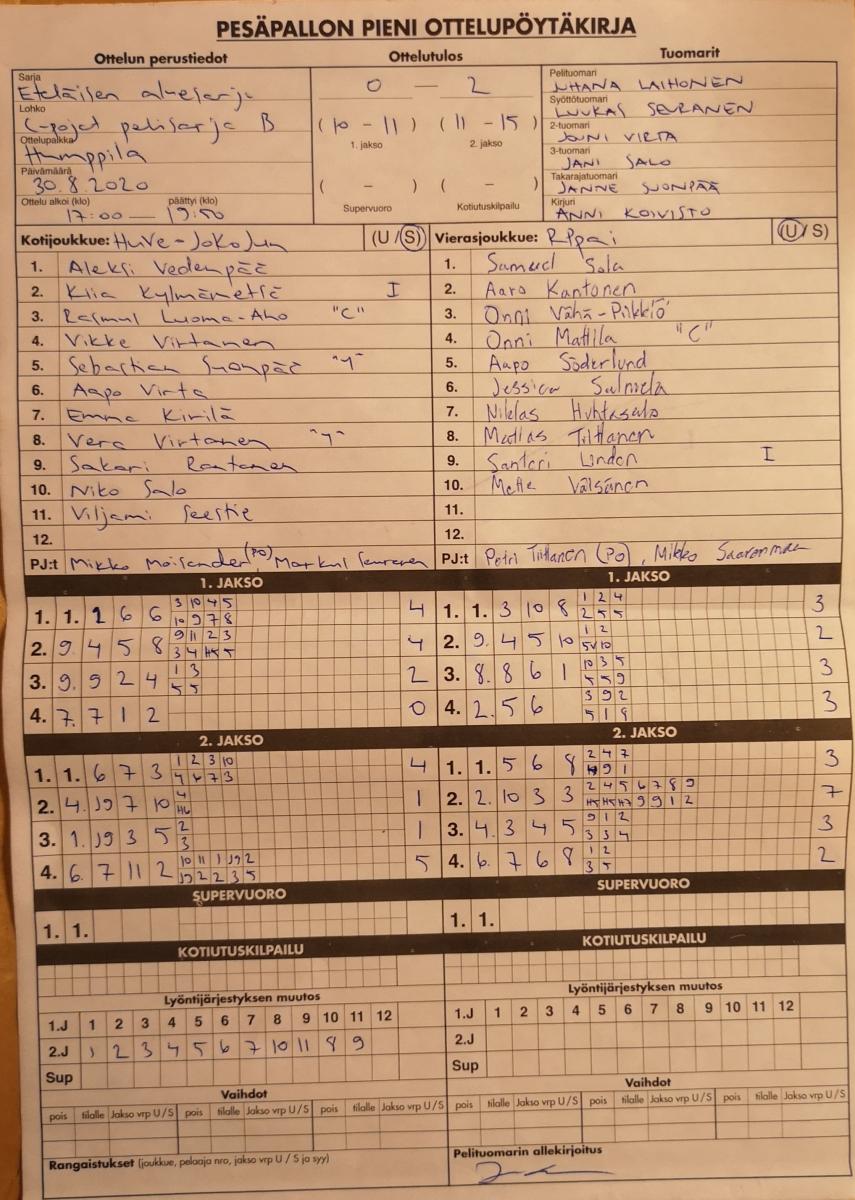 PESÄPALLON PIENI OTTELUPÖYTÄKIRJA
Ottelun perustiedot Ottelutulos Tuomarit
Sarja
Eteläisen aluesarja
Lohko
C-pojat pelisarja B
Ottelupaikka
Humppila
Päivämäärä
30.8.2020
Ottelu alkoi (klo) päättyi (klo)
17:00 — 19:50
0 — 2
(10 - 11) (11 - 15)
1. jakso 2. jakso
( - ) ( - )
Supervuoro Kotiutuskilpailu
Pelituomari
JUHANA LAIHONEN
Syöttötuomari
LUUKAS SEURANEN
2-tuomari
JOUNI VIRTA
3-tuomari
JANI SALO
Takarajatuomari
JANNE SUONPÄÄ
Kirjuri
ANNI KOIVISTO
Kotijoukkue: HuVe-JoKoJun (U / S)
1. Aleksi Vedenpää
2. Kiia Kylmämetsä I
3. Rasmus Luoma-Aho "C"
4. Vikke Virtanen
5. Sebastian Suonpää "Y"
6. Aapo Virta
7. Emma Kirilä
8. Vera Virtanen "Y"
9. Sakari Rantanen
10. Niko Salo
11. Viljami Seestie
12.
PJ:t Mikko Moisander (PO), Markus Seuranen
Vierasjoukkue: RPpai (U / S)
1. Samuel Sola
2. Aaro Kantonen
3. Onni Vähä-Piikkiö
4. Onni Mattila "C"
5. Aapo Söderlund
6. Jessica Salmela
7. Niklas Huhtasalo
8. Matias Tiittanen
9. Santeri Linden I
10. Mette Väisänen
11.
12.
PJ:t Petri Tiittanen (PO), Mikko Saarenmaa
1. JAKSO
3 10 4 5
1. 1. 1 6 6 4
10 9 7 8
9 11 2 3
2. 9 4 5 8 4
3 4 H5 5
1 3
3. 9. 9 2 4 2
5 5
4. 7. 7 1 2 0
2. JAKSO
1 2 3 10
1. 1. 6 7 3 4
4 6 7 3
4
2. 4. J9 7 10 1
H6
2
3. 1. J9 3 5 1
3
10 11 1 J9 2
4. 6. 7 11 2 5
J9 2 2 3 5
1. JAKSO
1 2 4
1. 1. 3 10 8 3
2 5 5
1 2
2. 9. 4 5 10 2
5V 10
10 3 5
3. 8. 8 6 1 3
5 5 9
3 9 2
4. 2. 5 6 3
5 1 9
2. JAKSO
2 4 7
1. 1. 5 6 8 3
9 1
2 4 5 6 7 8 9
2. 2. 10 3 3 7
H5 H5 H7 9 9 1 2
9 1 2
3. 4. 3 4 5 3
3 3 4
1 2
4. 6. 7 6 8 2
3 5
SUPERVUORO
1. 1.
KOTIUTUSKILPAILU
Lyöntijärjestyksen muutos
1.J 1 2 3 4 5 6 7 8 9 10 11 12
2.J 1 2 3 4 5 6 7 10 11 8 9
Sup
Vaihdot
pois tilalle Jakso vrp U / S pois tilalle Jakso vrp U / S pois tilalle Jakso vrp U / S
Rangaistukset (joukkue, pelaaja nro, jakso vrp U / S ja syy)
SUPERVUORO
1. 1.
KOTIUTUSKILPAILU
Lyöntijärjestyksen muutos
1.J 1 2 3 4 5 6 7 8 9 10 11 12
2.J
Sup
Vaihdot
pois tilalle Jakso vrp U / S pois tilalle Jakso vrp U / S pois tilalle Jakso vrp U / S
Pelituomarin allekirjoitus